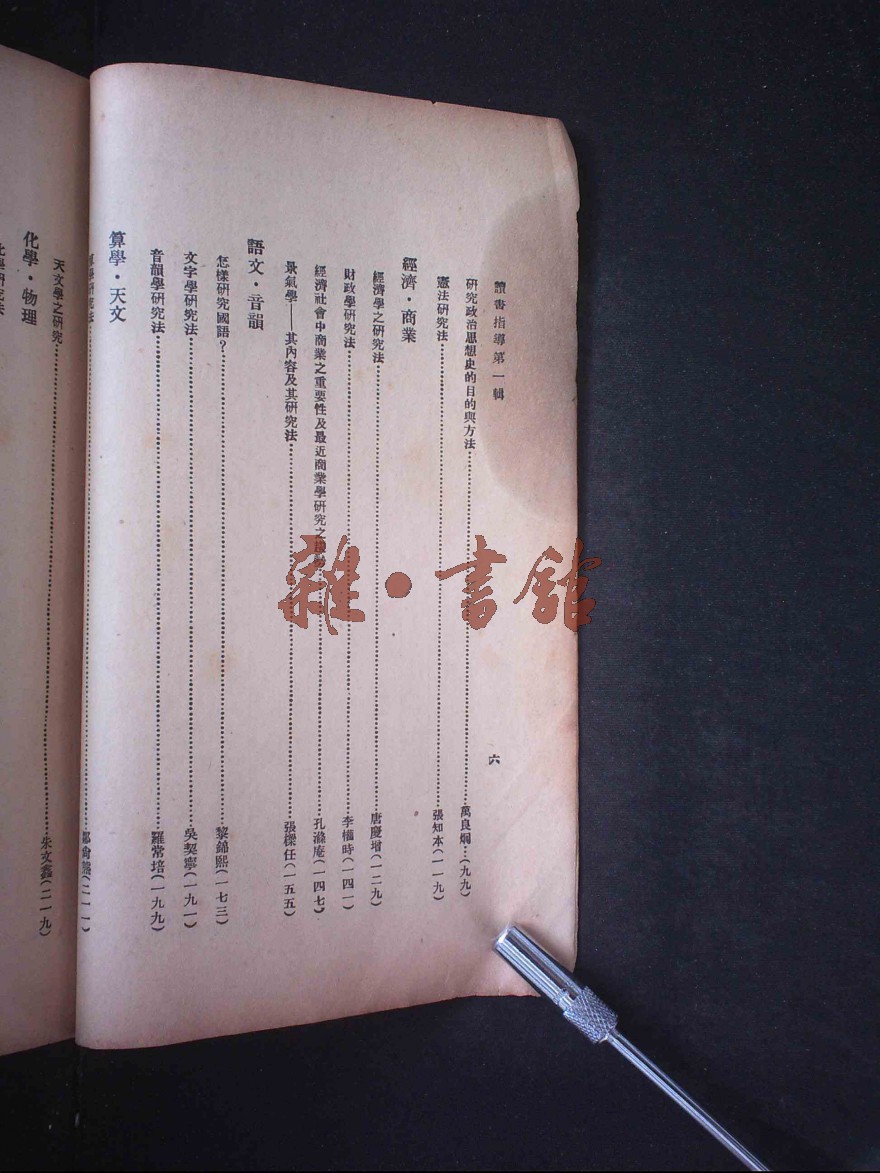 讀書指導第一輯
六
研究政治思想史的目的與方法……萬良炯…(九九)
憲法研究法……張知本(一一九)
經濟·商業
經濟學之研究法……唐慶增(一二九)
財政學研究法……李權時(一四一)
經濟社會中商業之重要性及最近商業學研究之……孔滌庵(一四七)
景氣學——其內容及其研究法……張樑任(一五五)
語文·音韻
怎樣研究國語?……黎錦熙(一七三)
文字學研究法……吳契寧(一九一)
音韻學研究法……羅常培(一九九)
算學·天文
研究法……(二一一)
天文學之研究……朱文鑫(二一九)
化學·物理
化學研究法
雜·書館